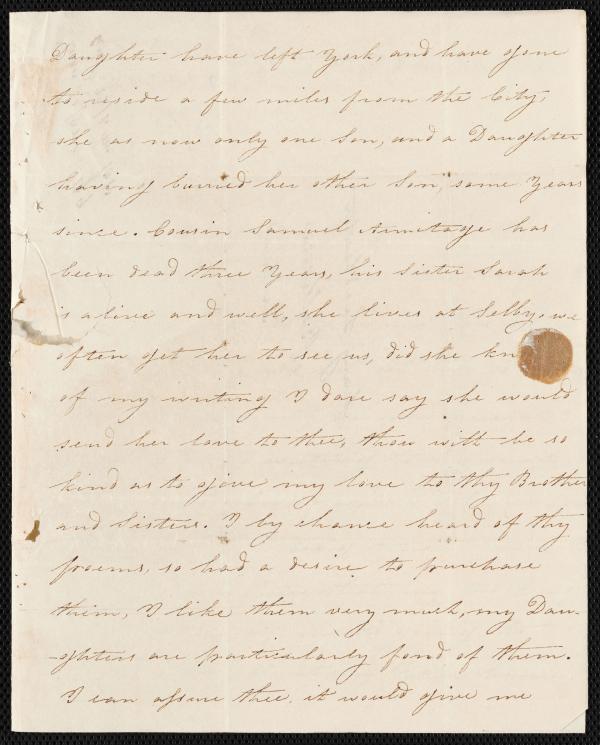 Daughter have left York, and have gone
to reside a few miles from the City,
she as now only one Son, and a Daughter
having burried her other Son, some Years
since. Cousin Samuel Armitage has
been dead three Years, his Sister Sarah
is alive and well, she lives at Selby, we
often get her to see us, did she kn
of my writing I dare say she would
send her love to thee, thou will be so
kind as to give my love to thy Brother
and Sisters. I by chance heard of thy
poems, so had a desire to purchase
them, I like them very much, my Dau-
-ghters are particularly fond of them.
I can assure thee, it would give me